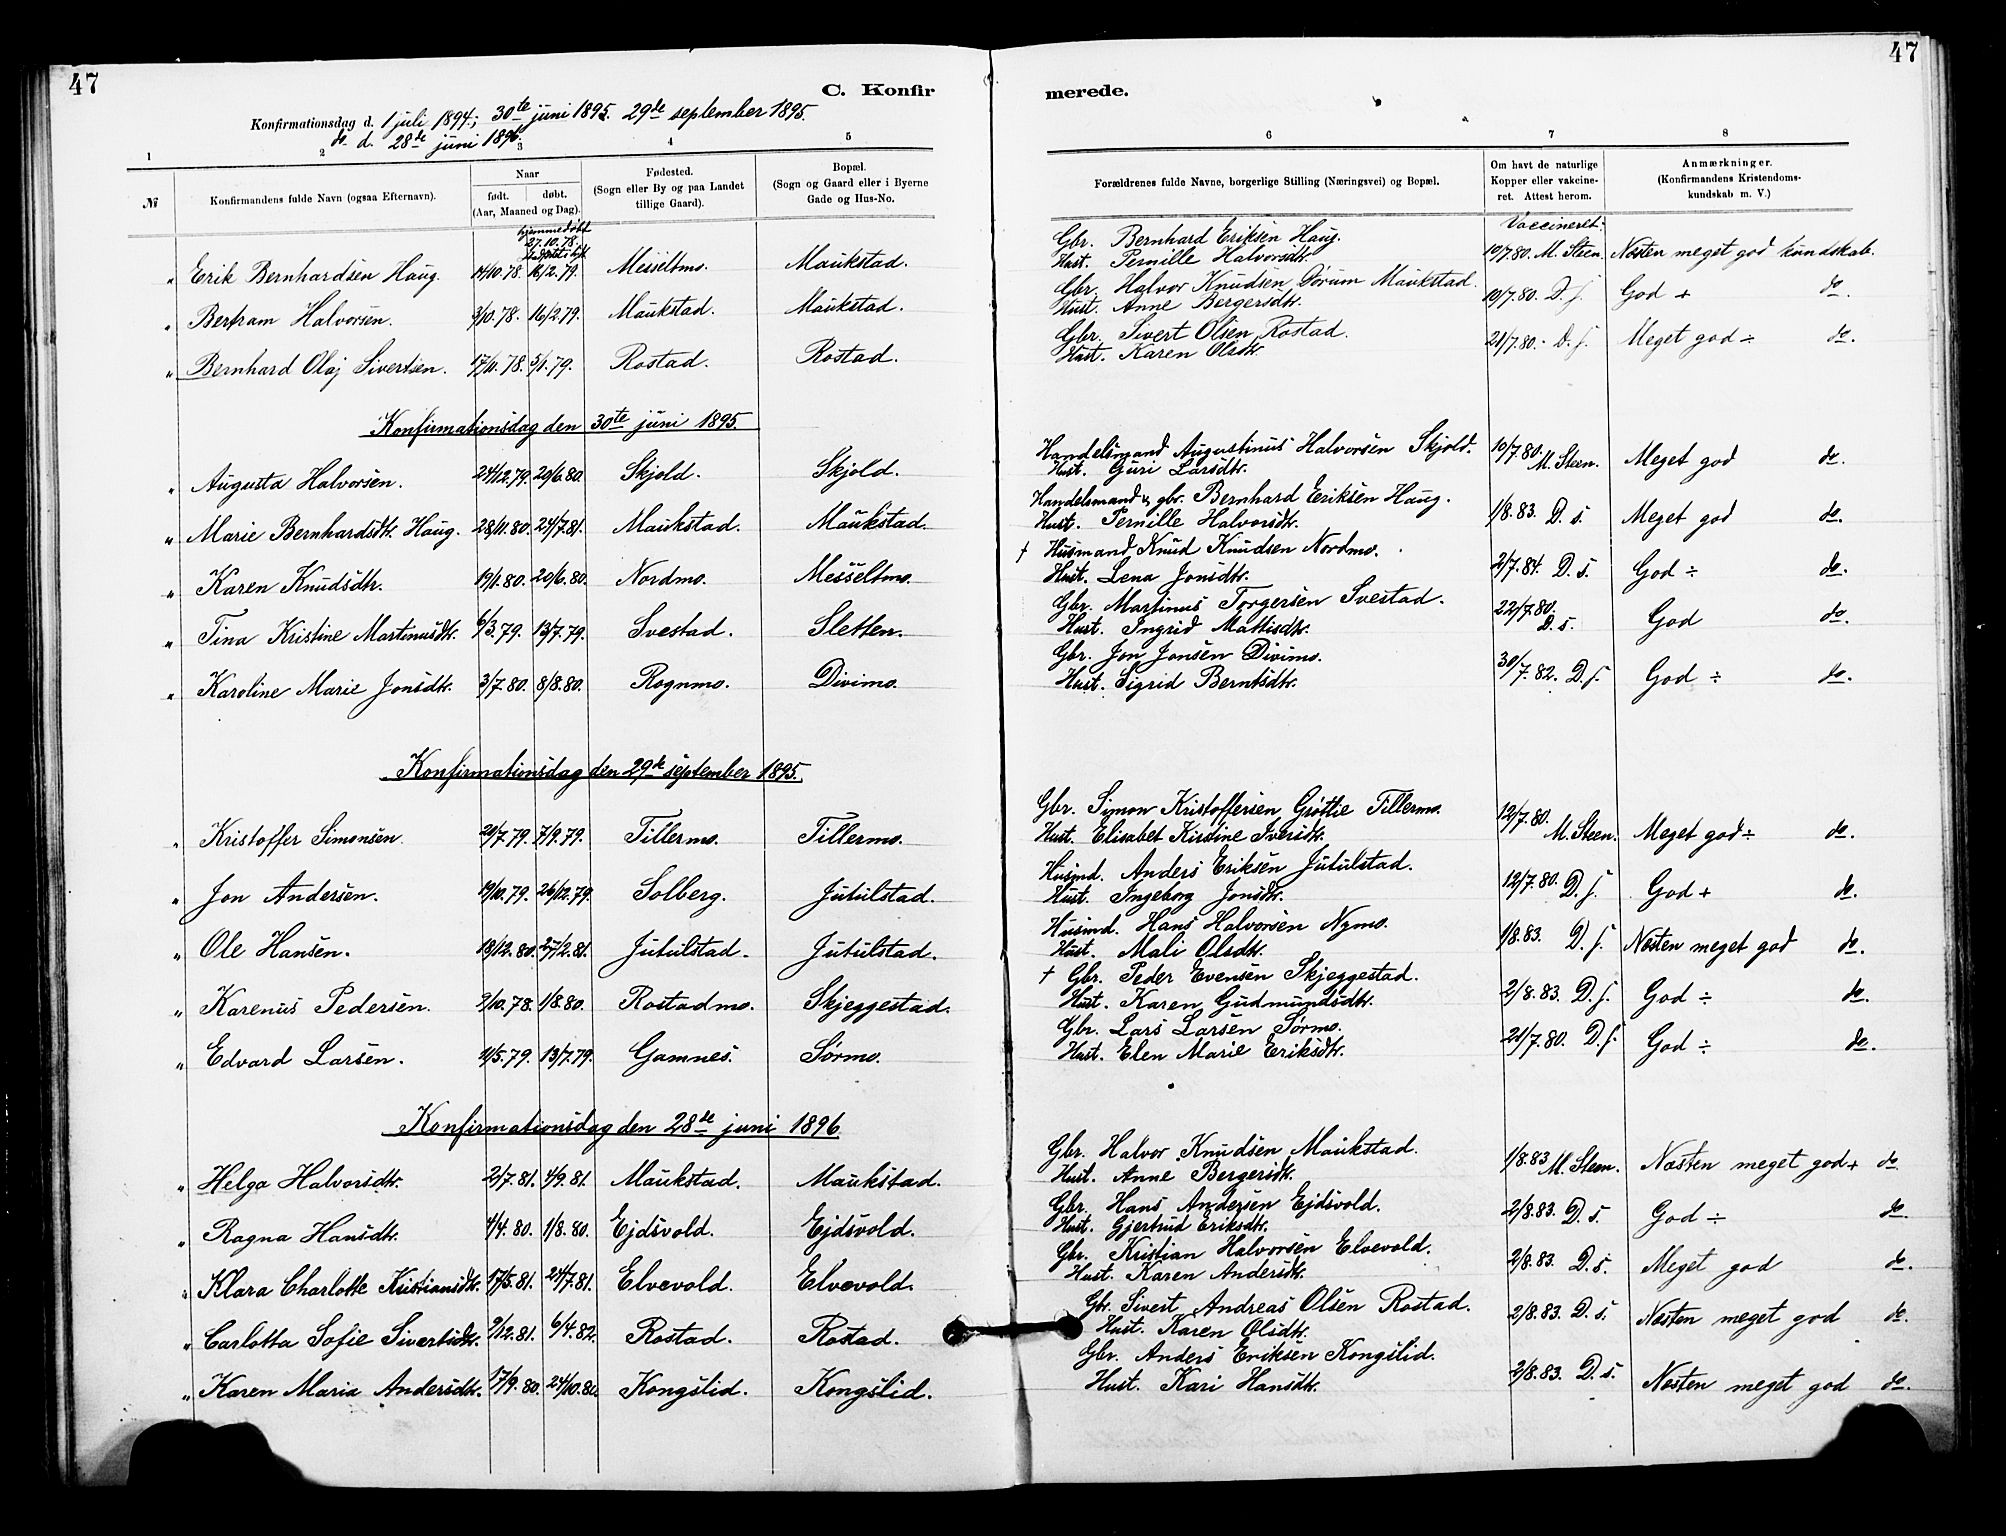 47
47
C. Konfir
merede.
Konfirmationsdag d. 1 juli 1894; 30te juni 1895. 29de september 1895.
do d. 28de juni 1896.
1 2 3 4 5 6 7 8
№
Konfirmandens fulde Navn (ogsaa Efternavn).
Naar
født. døbt.
(Aar, Maaned og Dag).
Fødested.
(Sogn eller By og paa Landet
tillige Gaard).
Bopæl.
(Sogn og Gaard eller i Byerne
Gade og Hus-No.
Forældrenes fulde Navne, borgerlige Stilling (Næringsvei) og Bopæl.
Om havt de naturlige
Kopper eller vakcine-
ret. Attest herom.
Anmærkninger.
(Konfirmandens Kristendoms-
kundskab m. V.)
hjemmedøbt
27.10.78.
Vaccineret:
Gbr. Bernhard Eriksen Haug.
" Erik Bernhardsen Haug. 14/10.78. 16/2.79. Messeltmo. Maukstad. Hust. Pernille Halvorsdtr. 19/7.80. M. Steen. Næsten meget god kundskab.
Gbr. Halvor Knudsen Sørum Maukstad.
" Bertram Halvorsen. 3/10.78. 16/2.79. Maukstad. Maukstad. Hust. Anne Bergersdtr. 10/7.80. D. s. God + do.
Gbr. Sivert Olsen Rostad.
" Bernhard Olaj Sivertsen. 17/10.78. 5/1.79. Rostad. Rostad. Hust. Karen Olsdtr. 21/7.80. D. s. Meget god ÷ do.
Konfirmationsdag den 30te juni 1895.
Handelsmand Augustinus Halvorsen Skjold.
" Augusta Halvorsen. 24/12.79. 20/6.80. Skjold. Skjold. Hust. Guri Larsdtr. 10/7.80. M. Steen. Meget god do.
Handelsmand & gbr. Bernhard Eriksen Haug.
" Marie Bernhardsdtr. Haug. 28/11.80. 24/7.81. Maukstad. Maukstad. Hust. Pernille Halvorsdtr. 1/8.83. D. s. Meget god do.
† Husmand Knud Knudsen Nordmo.
" Karen Knudsdtr. 19/1.80. 20/6.80. Nordmo. Messeltmo. Hust. Lena Jonsdtr. 2/7.84. D. s. God ÷ do.
Gbr. Martinus Torgersen Svestad.
" Tina Kristine Martinusdtr. 6/3.79. 13/7.79. Svestad. Sletten. Hust. Ingrid Mattisdtr. 22/7.80. D. s. God do.
Gbr. Jon Jonsen Divimo.
" Karoline Marie Jonsdtr. 3/7.80. 8/8.80. Rognmo. Divimo. Hust. Sigrid Berntsdtr. 30/7.82. D. s. God ÷ do.
Konfirmationsdag den 29de september 1895.
Gbr. Simon Kristoffersen Grøttie Tillermo.
" Kristoffer Simonsen. 20/7.79. 7/9.79. Tillermo. Tillermo. Hust. Elisabet Kirstine Iversdtr. 12/7.80. M. Steen. Meget god ÷ do.
Husmd. Anders Eriksen Jutulstad.
" Jon Andersen. 19/10.79. 26/12.79. Solberg. Jutulstad. Hust. Ingeborg Jonsdtr. 12/7.80. D. s. God + do.
Husmd. Hans Halvorsen Nymo.
" Ole Hansen. 18/12.80. 27/2.81. Jutulstad. Jutulstad. Hust. Mali Olsdtr. 1/8.83. D. s. Næsten meget god do.
† Gbr. Peder Evensen Skjeggestad.
" Karenus Pedersen. 2/10.78. 1/8.80. Rostadmo. Skjeggestad. Hust. Karen Gudmundsdtr. 2/8.83. D. s. God ÷ do.
Gbr. Lars Larsen Sørmo.
" Edvard Larsen. 2/5.79. 13/7.79. Gamnes. Sørmo. Hust. Elen Marie Eriksdtr. 21/7.80. D. s. God ÷ do.
Konfirmationsdag den 28de juni 1896
Gbr. Halvor Knudsen Maukstad.
" Helga Halvorsdtr. 2/7.81. 4/9.81. Maukstad. Maukstad. Hust. Anne Bergersdtr. 1/8.83 M. Steen. Næsten meget god + do
Gbr. Hans Andersen Ejdsvold.
" Ragna Hansdtr. 4/4.80. 1/8.80. Ejdsvold. Ejdsvold. Hust. Gjertrud Eriksdtr. 2/8.83. D. s. God ÷ do.
Gbr. Kristian Halvorsen Elvevold.
" Klara Charlotte Kristiansdtr. 17/5.81. 24/7.81. Elvevold. Elvevold. Hust. Karen Andersdtr. 2/8.83. D. s. Meget god do.
Gbr. Sivert Andreas Olsen Rostad.
" Carlotta Sofie Sivertsdtr. 9/12.81. 6/4.82. Rostad. Rostad. Hust. Karen Olsdtr. 2/8.83. D. s. Næsten meget god do.
Gbr. Anders Eriksen Kongslid.
" Karen Maria Andersdtr. 17/9.80. 24/10.80. Kongslid. Kongslid. Hust. Kari Hansdtr. 2/8.83. D. s. Næsten meget god do.